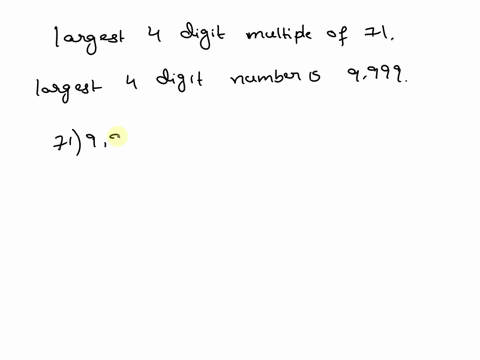 largest 4 digit multiple of 71.
largest 4 digit number is 9,999.
71)9,9